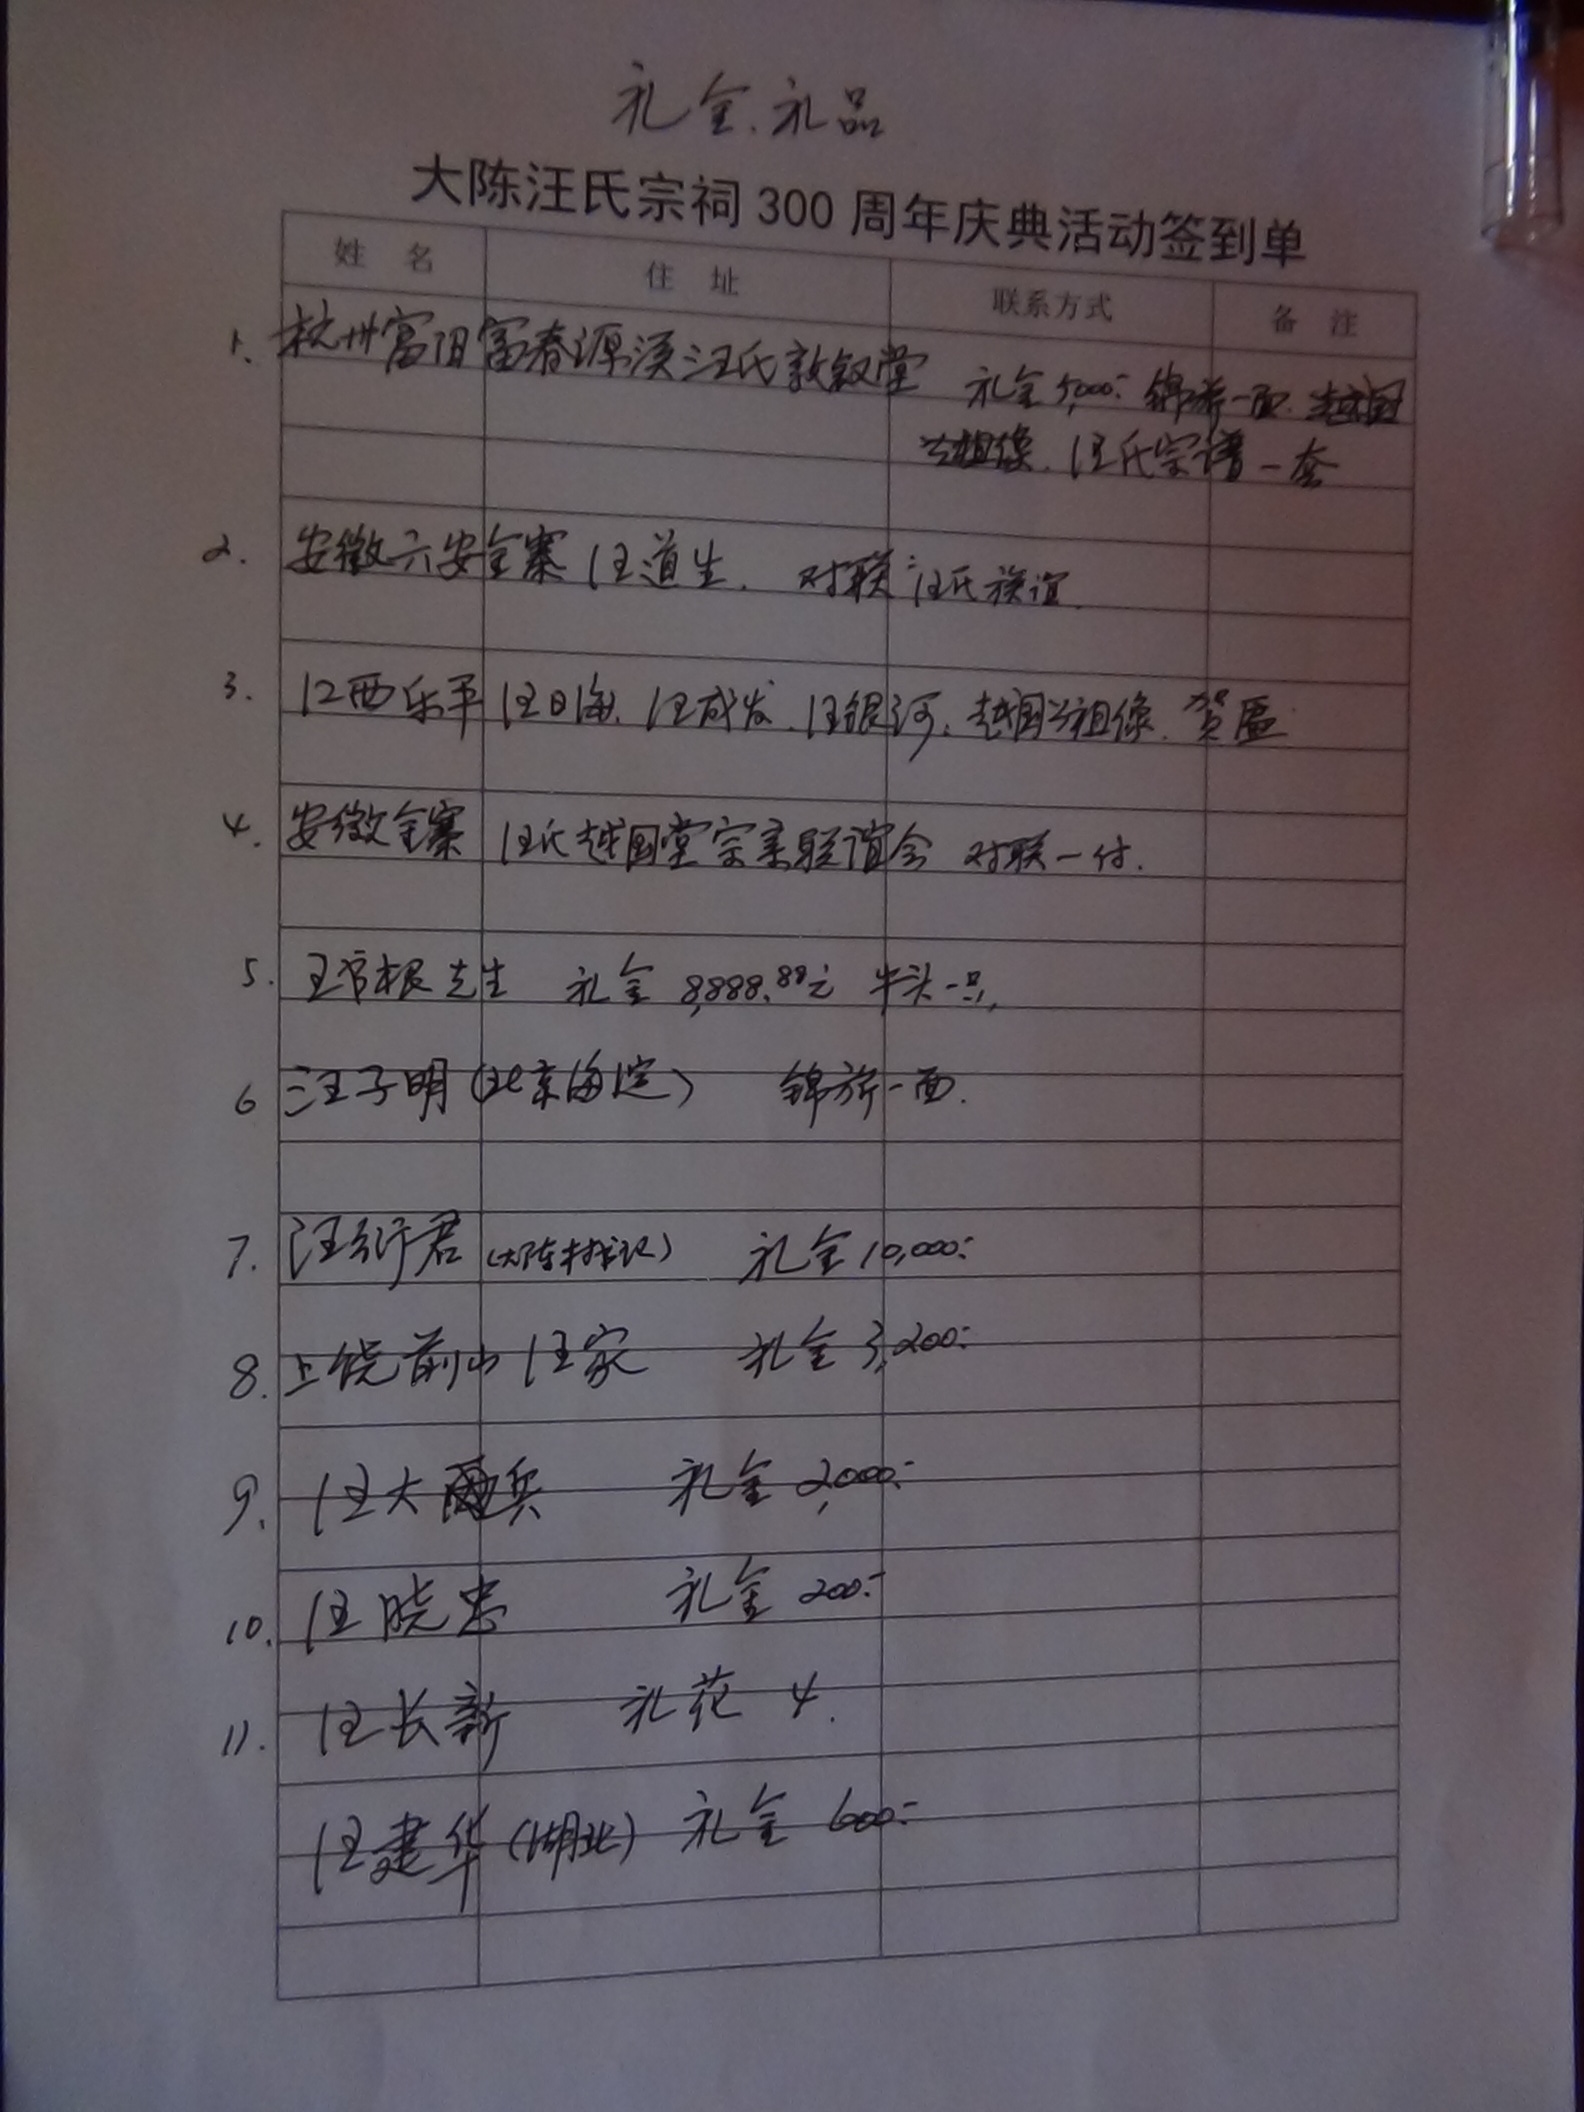 礼金、礼品
大陈汪氏宗祠 300 周年庆典活动签到单
姓 名 住 址 联系方式 备 注
1、杭州富阳富春源溪汪氏敦叙堂 礼金5,000:- 锦旗一面、越国
公祖像、汪氏宗谱一套
2. 安徽六安金寨 汪道生. 对联:汪氏族谊.
3. 江西乐平 汪日海、汪成发、汪银河、越国公祖像、贺匾
4. 安徽金寨 汪氏越国堂宗亲联谊会 对联一付.
5. 王官根先生 礼金 8,888.88元 牛头一只.
6 汪子明(北京海淀) 锦旗一面.
7. 汪衍君(大陈村书记) 礼金10,000:-
8. 上饶前山 汪家 礼金 3,200:-
9. 汪大兵 礼金 2,000:-
10. 汪晓忠 礼金 200:-
11. 汪长新 礼花 4.
汪建华(湖北) 礼金 600:-